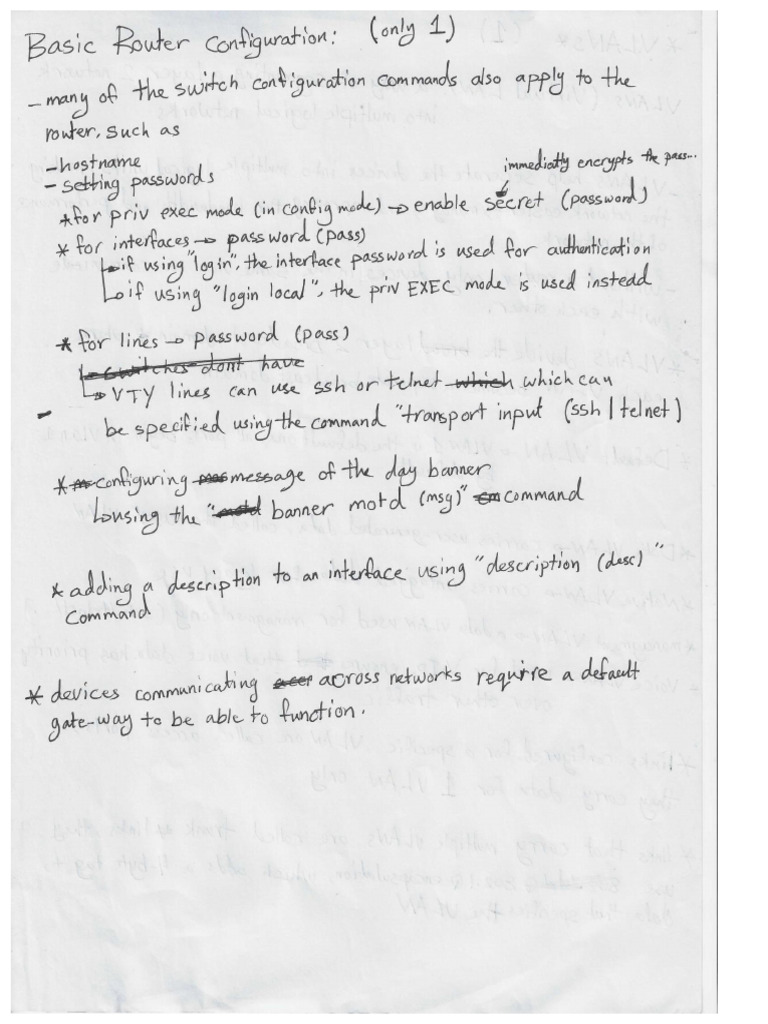 Basic Router Configuration: (only 1)
- many of the switch configuration commands also apply to the
router, such as
- hostname
immediatly encrypts the pass...
- setting passwords
* for priv exec mode (in config mode) → enable secret (password)
* for interfaces → password (pass)
↳ if using "login", the interface password is used for authentication
↳ if using "login local", the priv EXEC mode is used instead
* for lines → password (pass)
↳ switches dont have
↳ VTY lines can use ssh or telnet which which can
be specified using the command "transport input (ssh | telnet)
* configuring message of the day banner
↳ using the "motd banner motd (msg)" command
* adding a description to an interface using "description (desc)"
command
* devices communicating across networks require a default
gate-way to be able to function.